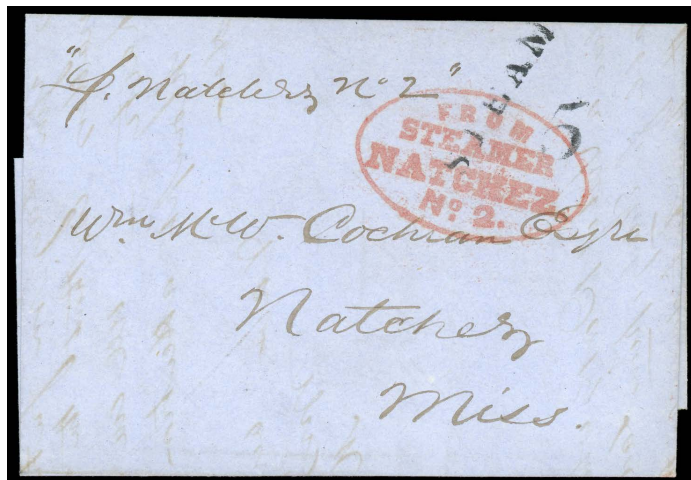 "P. Natchez No 2"
STEAM
5
FROM
STEAMER
NATCHEZ
No. 2.
Wm McW. Cochran Esqre
Natchez
Miss.